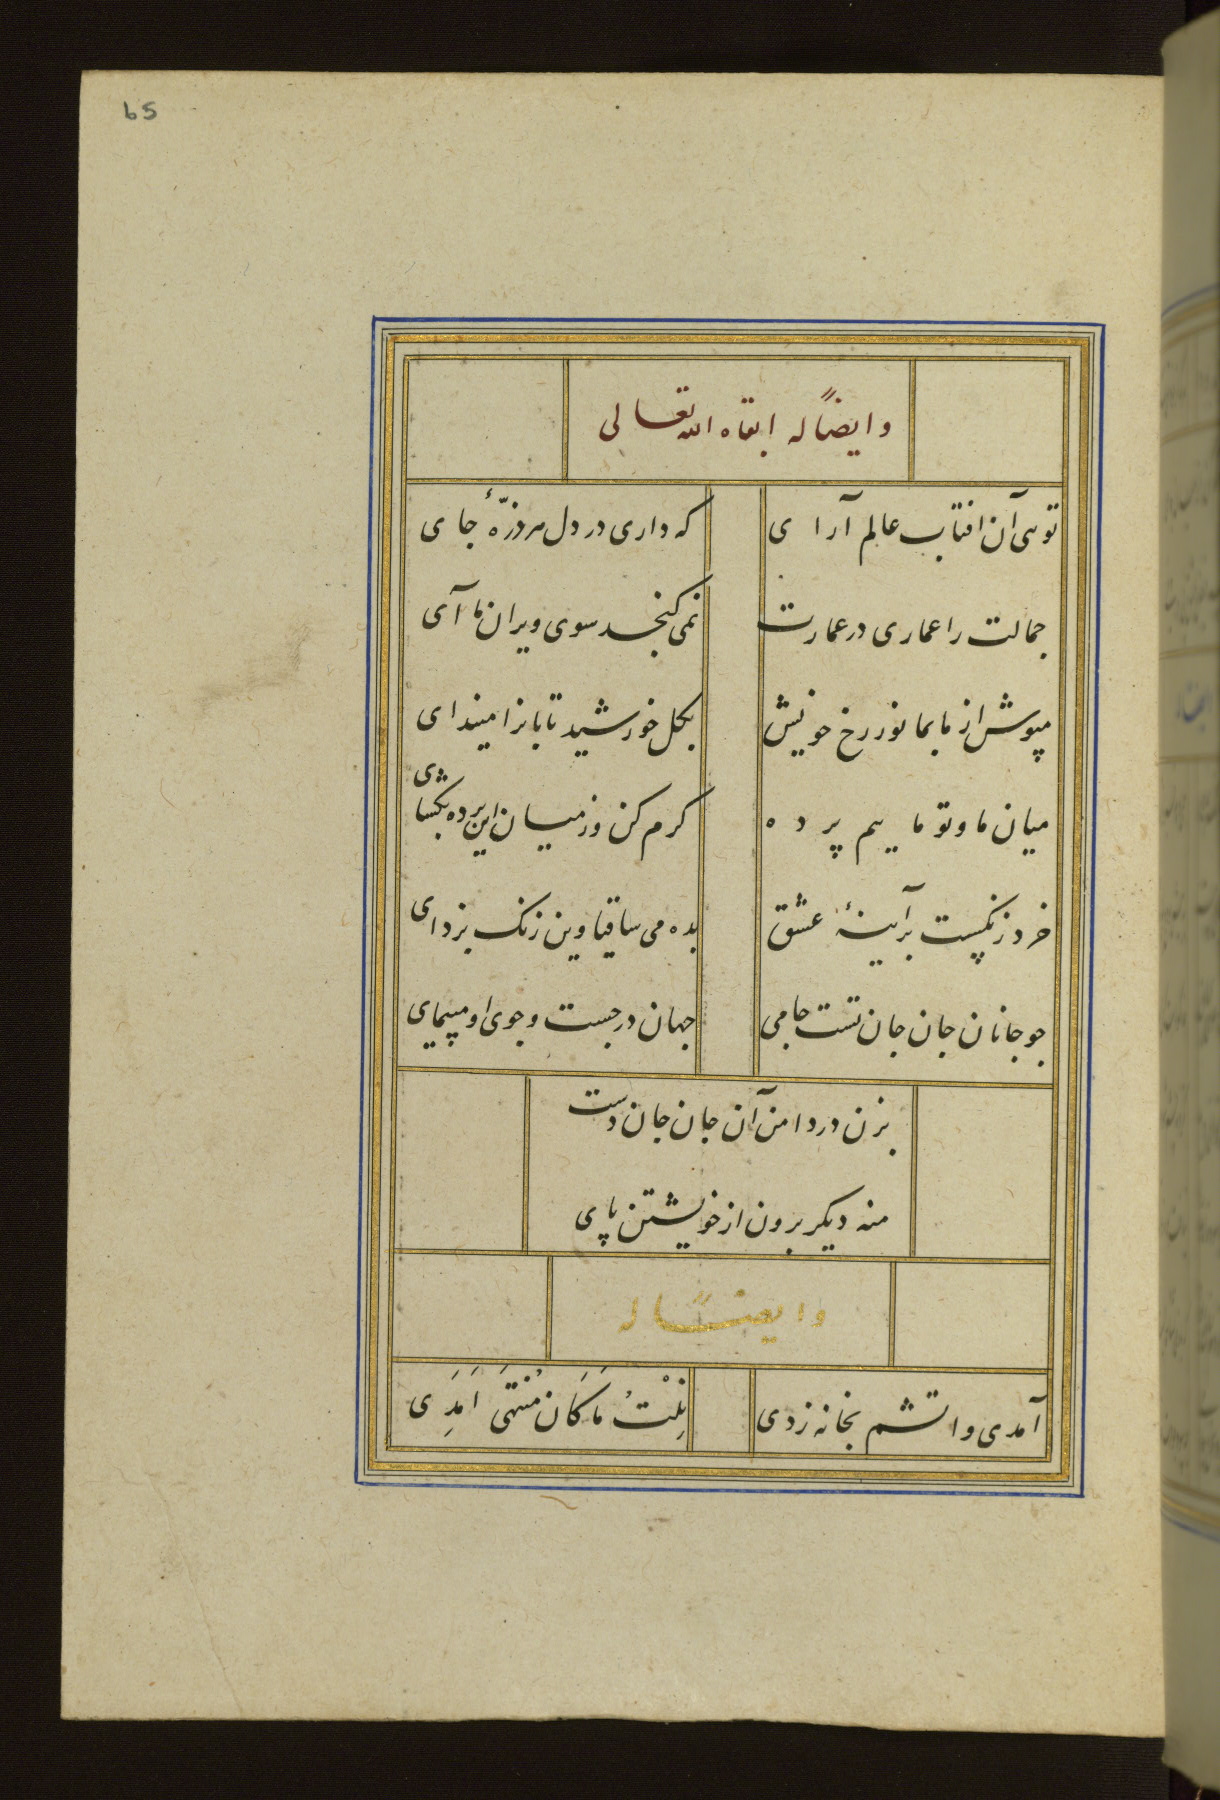 65
وایضًا له ابقاه الله تعالی
توئی آن افتاب عالم آرای که داری در دل هر ذرّهٔ جای
جمالت را عماری در عمارت نمی کنجد سوی ویران ما آی
مپوش از ما بما نور رخ خویش بکل خورشید تابانرا میندای
میان ما و تو ماییم پرده کرم کن وز میان این پرده بکشای
خرد زنکیست بر آیینهٔ عشق بده می ساقیا وین زنک بزدای
جو جانان جان جان تست جامی جهان در جست و جوی او مپیمای
بزن در دامن آن جان جان دست
منه دیکر برون از خویشتن پای
وایضًا له
آمدی و اتشم بخانه زدی نِلْتُ مَا کَانَ مُنتهَی اَمَدِی